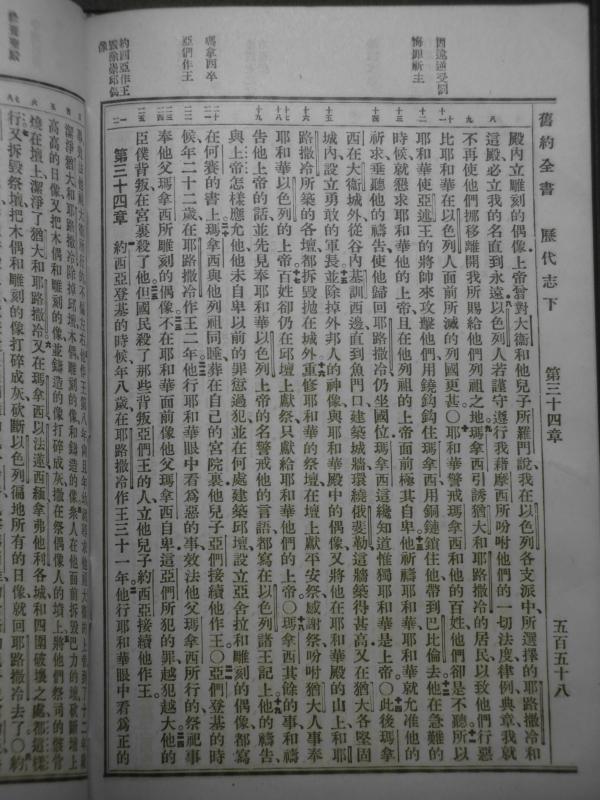 舊約全書 歷代志下 第三十四章 五百五十八
因遠適受罰
悔罪祈主
瑪拿西卒
亞們作王
約西亞作王
毀除崇邱偶
像
殿內立雕刻的偶像上帝曾對大衞和他兒子所羅門說我在以色列各支派中所選擇的耶路撒冷和
這殿必立我的名直到永遠以色列人若謹守遵行我藉摩西所吩咐他們的一切法度律例典章我就
不再使他們挪移離開我所賜給他們列祖之地瑪拿西引誘猶大和耶路撒冷的居民以致他們行惡
比耶和華在以色列人面前所滅的列國更甚〇耶和華警戒瑪拿西和他的百姓他們卻是不聽所以
耶和華使亞述王的將帥來攻擊他們用鐃鈎鈎住瑪拿西用銅鏈鎖住他帶到巴比倫去他在急難的
時候就懇求耶和華他的上帝且在他列祖的上帝面前極其自卑他祈禱耶和華耶和華就允准他的
祈求垂聽他的禱告使他歸回耶路撒冷仍坐國位瑪拿西這纔知道惟獨耶和華是上帝〇此後瑪拿
西在大衞城外從谷內基訓西邊直到魚門口建築城牆環繞俄斐勒這牆築得甚高又在猶大各堅固
城內設立勇敢的軍長並除掉外邦人的神像與耶和華殿中的偶像又將他在耶和華殿的山上和耶
路撒冷所築的各壇都拆毀拋在城外重修耶和華的祭壇在壇上獻平安祭感謝祭吩咐猶大人事奉
耶和華以色列的上帝百姓卻仍在邱壇上獻祭只獻給耶和華他們的上帝〇瑪拿西其餘的事和禱
告他上帝的話並先見奉耶和華以色列上帝的名警戒他的言語都寫在以色列諸王記上他的禱告
與上帝怎樣應允他他未自卑以前的罪愆過犯並在何處建築邱壇設立亞舍拉和雕刻的偶像都寫
在何賽的書上瑪拿西與他列祖同睡葬在自己的宮院裏他兒子亞們接續他作王〇亞們登基的時
候年二十二歲在耶路撒冷作王二年他行耶和華眼中看爲惡的事效法他父瑪拿西所行的祭祀事
奉他父瑪拿西所雕刻的偶像不在耶和華面前像他父瑪拿西自卑這亞們所犯的罪越犯越大他的
臣僕背叛在宮裏殺了他但國民殺了那些背叛亞們王的人立他兒子約西亞接續他作王
第三十四章 約西亞登基的時候年八歲在耶路撒冷作王三十一年他行耶和華眼中看爲正的
潔淨猶大和耶路撒冷除掉邱壇
高高的日像又把木偶和雕刻的像並鑄造的像打碎成灰撒在祭偶像人的墳上將他們祭司的骸骨
燒在壇上潔淨了猶大和耶路撒冷又在瑪拿西以法蓮西緬拿弗他利各城和四圍破壞之處都這樣
行又拆毀祭壇把木偶和雕刻的像打碎成灰砍斷以色列徧地所有的日像就回耶路撒冷去了〇約